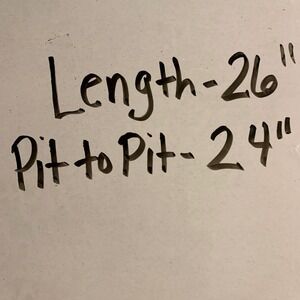 Length - 26"
Pit to Pit - 24"